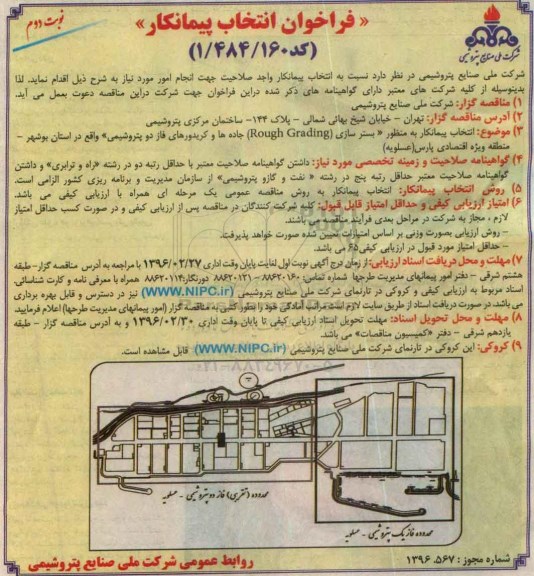 نوبت دوم
« فراخوان انتخاب پیمانکار»
(کد۱/۴۸۴/۱۶۰)
شرکت ملی صنایع پتروشیمی
شرکت ملی صنایع پتروشیمی در نظر دارد نسبت به انتخاب پیمانکار واجد صلاحیت جهت انجام امور مورد نیاز به شرح ذیل اقدام نماید. لذا
بدینوسیله از کلیه شرکت های معتبر دارای گواهینامه های ذکر شده دراین فراخوان جهت شرکت دراین مناقصه دعوت بعمل می آید.
۱) مناقصه گزار: شرکت ملی صنایع پتروشیمی
۲) آدرس مناقصه گزار: تهران – خیابان شیخ بهائی شمالی – پلاک ۱۴۴– ساختمان مرکزی پتروشیمی
۳) موضوع: انتخاب پیمانکار به منظور « بستر سازی (Rough Grading) جاده ها و کریدورهای فاز دو پتروشیمی» واقع در استان بوشهر –
منطقه ویژه اقتصادی پارس(عسلویه)
۴) گواهینامه صلاحیت و زمینه تخصصی مورد نیاز: داشتن گواهینامه صلاحیت معتبر با حداقل رتبه دو در رشته «راه و ترابری» و داشتن
گواهینامه صلاحیت معتبر حداقل رتبه پنج در رشته « نفت و گاز و پتروشیمی» از سازمان مدیریت و برنامه ریزی کشور الزامی است.
۵) روش انتخاب پیمانکار: انتخاب پیمانکار به روش مناقصه عمومی یک مرحله ای همراه با ارزیابی کیفی می باشد.
۶) امتیاز ارزیابی کیفی و حداقل امتیاز قابل قبول: کلیه شرکت کنندگان در مناقصه پس از ارزیابی کیفی و در صورت کسب حداقل امتیاز
لازم ، مجاز به شرکت در مراحل بعدی فرآیند مناقصه می باشند.
– روش ارزیابی بصورت وزنی بر اساس امتیازات تعیین شده صورت خواهد پذیرفت.
– حداقل امتیاز مورد قبول در ارزیابی کیفی ۶۵ می باشد.
۷) مهلت و محل دریافت اسناد ارزیابی: از زمان درج آگهی نوبت اول لغایت پایان وقت اداری ۱۳۹۶/۰۲/۲۷ با مراجعه به آدرس مناقصه گزار– طبقه
هشتم شرقی – دفتر امور پیمانهای مدیریت طرحها شماره تماس: ۸۸۶۲۰۱۶۰ – ۸۸۶۲۰۱۳۱ دورنگار:۸۸۶۲۰۱۱۴ همراه با معرفی نامه و کارت شناسائی.
اسناد مربوط به ارزیابی کیفی و کروکی در تارنمای شرکت ملی صنایع پتروشیمی (WWW.NIPC.ir) نیز در دسترس و قابل بهره برداری
می باشد. در صورت دریافت اسناد از طریق سایت لازم است مراتب آمادگی خود را بطور کتبی به مناقصه گزار (امور پیمانهای مدیریت طرحها) اعلام فرمایید.
۸) مهلت و محل تحویل اسناد: مهلت تحویل اسناد ارزیابی کیفی تا پایان وقت اداری ۱۳۹۶/۰۲/۳۰ و به آدرس مناقصه گزار – طبقه
یازدهم شرقی – دفتر «کمیسیون مناقصات» می باشد.
۹) کروکی: این کروکی در تارنمای شرکت ملی صنایع پتروشیمی (WWW.NIPC.ir) قابل مشاهده است.
محدوده (تقریبی) فاز دو پتروشیمی - عسلویه
محدوده فاز یک پتروشیمی - عسلویه
شماره مجوز : ۱۳۹۶.۵۶۷
روابط عمومی شرکت ملی صنایع پتروشیمی